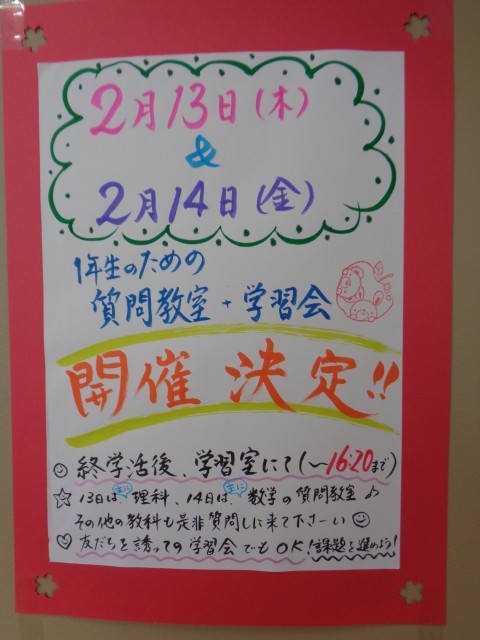 2月13日(木)
&
2月14日(金)
1年生のための
質問教室+学習会
開催 決定!!
終学活後、学習室にて(~16:20まで)
☆ 13日は主に理科、14日は主に数学の質問教室♪
その他の教科も是非質問しに来て下さーい☺
♡ 友だちを誘っての学習会でもOK!課題を進めよう!